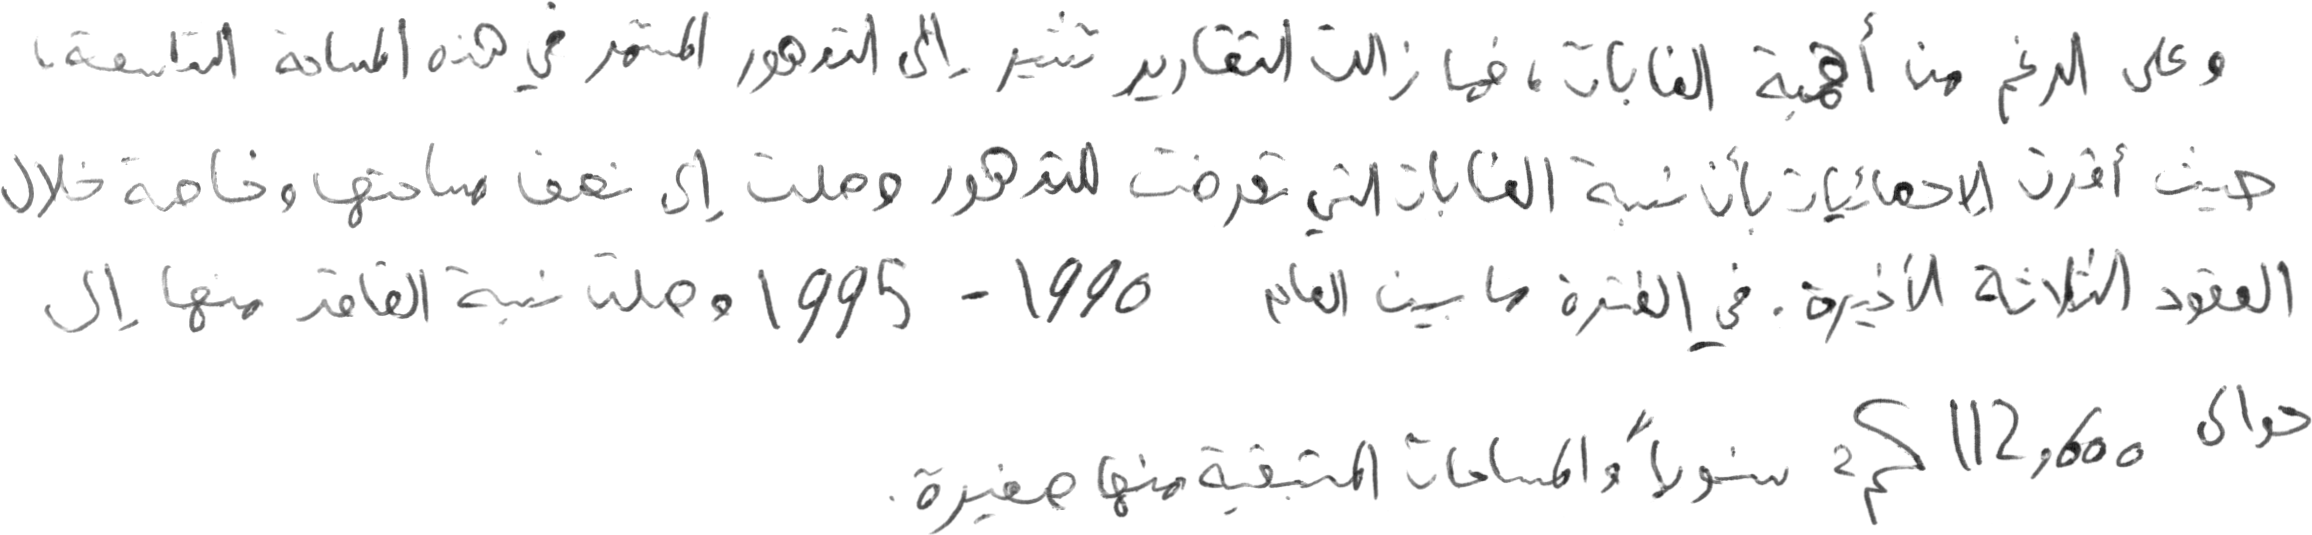 وعلى الرغم من أهمية الغابات، فما زالت التقارير تشير إلى التدهور المستمر في هذه المساحة الشاسعة،
حيث أقرت الإحصائيات بأن نسبة الغابات التي تعرضت للتدهور وصلت إلى نصف مساحتها وخاصة خلال
العقود الثلاثة الأخيرة. في الفترة ما بين العام 1990 - 1995 وصلت نسبة الفاقد منها إلى
حوالى 112,600 كم2 سنوياً والمساحات المتبقية منها صغيرة.